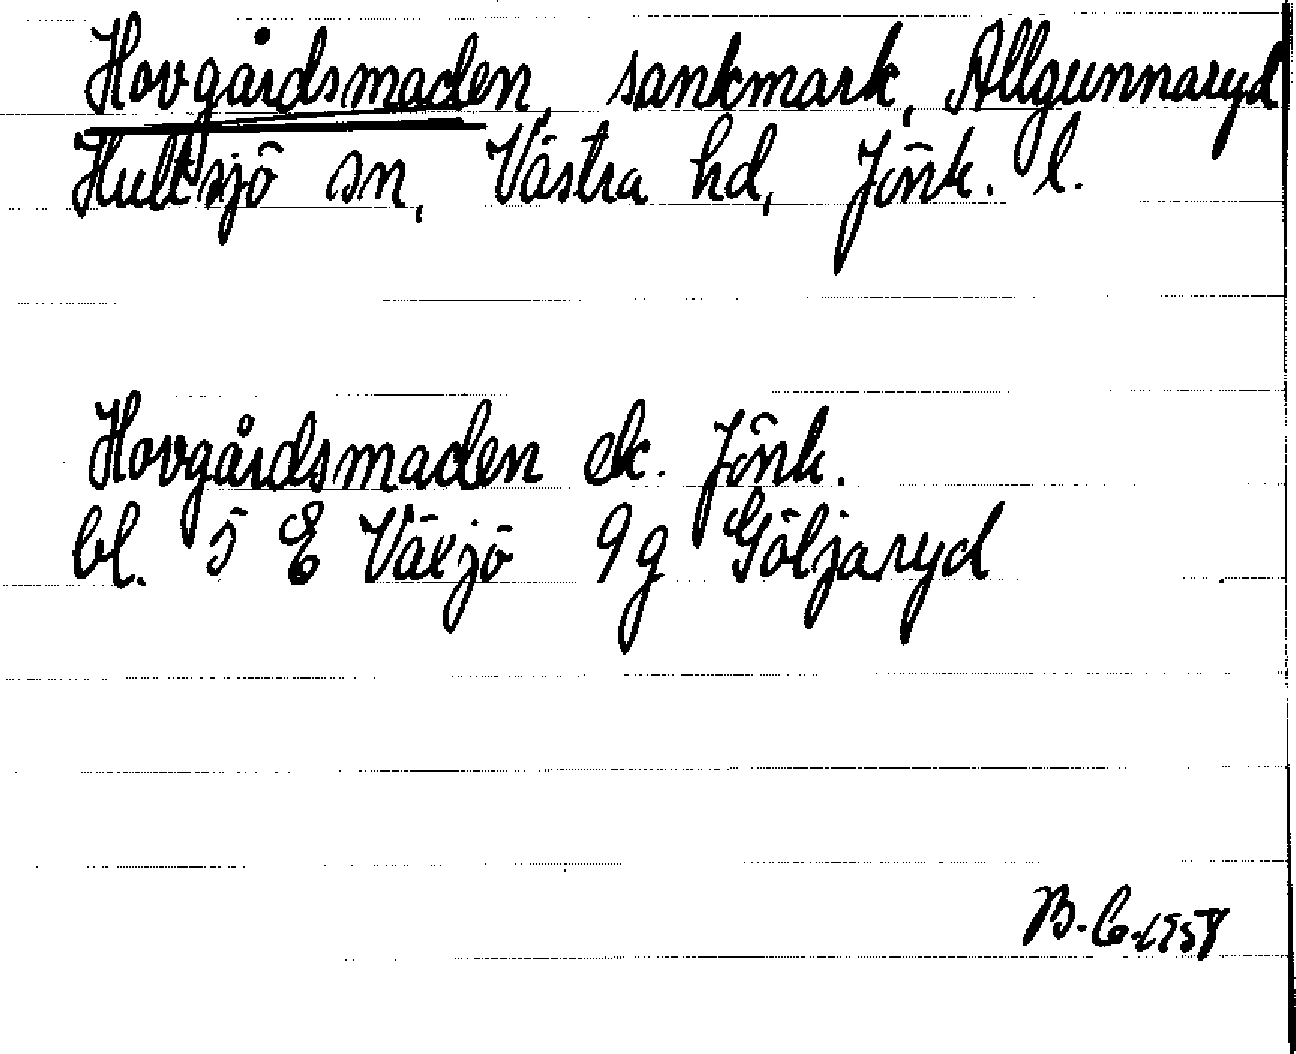 Hovgårdsmaden, sankmark, Allgunnaryd
Hultsjö sn, Västra hd, Jönk. l.
Hovgårdsmaden ek. Jönk.
bl. 5 E Växjö 9g Göljaryd
B. C. 1958